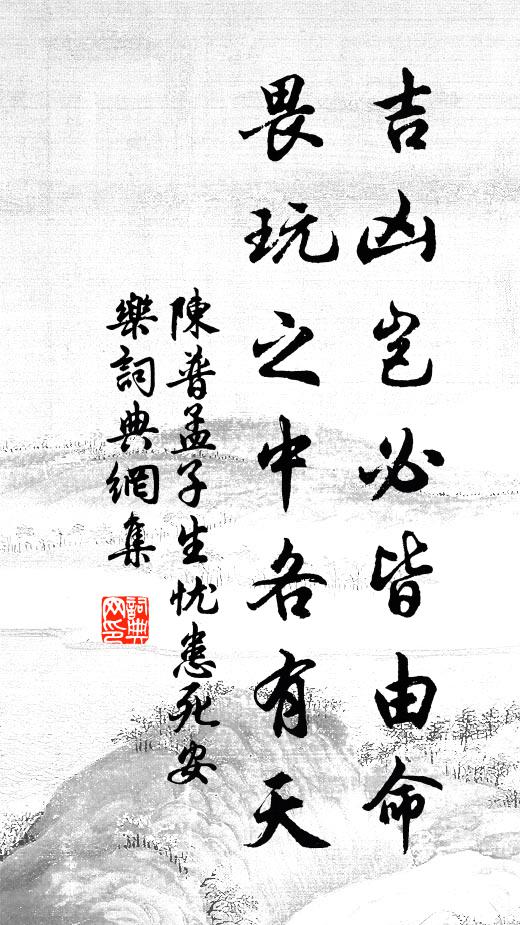 吉凶岂必皆由命
畏玩之中各有天
陳普孟子生忧患死安
樂詞典網集
詞典网印